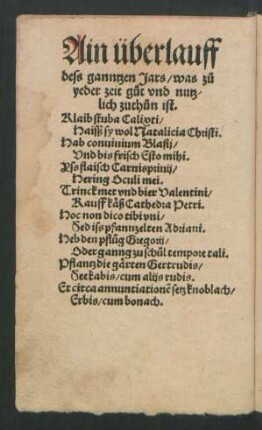 Ain überlauff
dess ganntzen Jars/ was zů
yeder zeit gůt vnd nutz-
lich zuthůn ist.
Klaib stuba Calixti/
Haiß sy wol Natalicia Christi.
Hab conuiuium Blasij/
Vnd bis frisch Esto mihi.
Yss flaisch Carnispriuij/
Hering Oculi mei.
Trinck met vnd bier Valentini/
Kauff käß Cathedra Petri.
Hoc non dico tibi vni/
Sed iss pfannzelten Adriani.
Heb den pflůg Gregorij/
Oder ganng zu schůl tempore tali.
Pflantz die gärten Gertrudis/
Setz kabis/ cum alijs rudis.
Et circa annuntiationē setz knoblach/
Erbis/ cum bonach.